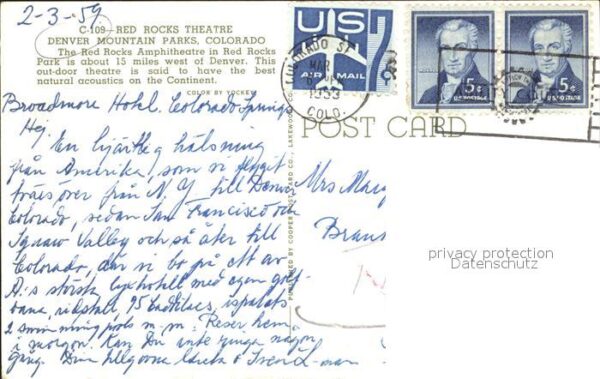 2-3-59
C-109—RED ROCKS THEATRE
DENVER MOUNTAIN PARKS, COLORADO
The Red Rocks Amphitheatre in Red Rocks
Park is about 15 miles west of Denver. This
out-door theatre is said to have the best
natural acoustics on the Continent.
COLOR BY YOCKEY
US
7¢
AIR MAIL
COLORADO SP
MAR
1959
COLO.
5¢
U.S. POSTAGE
5¢
U.S. POSTAGE
POST CARD
PUBLISHED BY COOPER POST CARD CO., LAKEWOOD
Broadmore Hotel. Colorado Springs
Hej.
En hjärtlig hälsning
från Amerika, som vi flygit
tvärs över från N.Y. till Denver
Colorado, sedan San Francisco och
Squaw Valley och så åter till
Colorado, där vi bo på ett av
A:s största lyxhotell med egen golf-
bana, ridstall, 95 Cadillacs, ispalats
2 swimming pools m.m. Reser hem
i morgon. Kan Du inte ringa någon
gång. Din tillgivna
Mrs Marg
privacy protection
Datenschutz